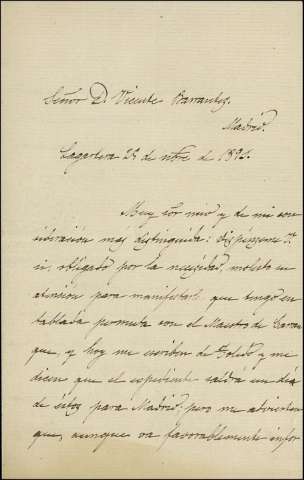 Señor D. Vicente Barrantes.
Madrid.
Lagartera 29 de de 1892.
Muy Sor mio y de mi con
sideración más distinguida: dispénseme
si, obligado por la necesidad, molesto su
atencion para manifestarle que tengo en
tablada permuta con el Maestro de
que, y hoy me escriben de Toledo y me
dicen que el espediente saldrá un dia
de éstos para Madrid; pero me advierten
que, aunque va favorablemente infor